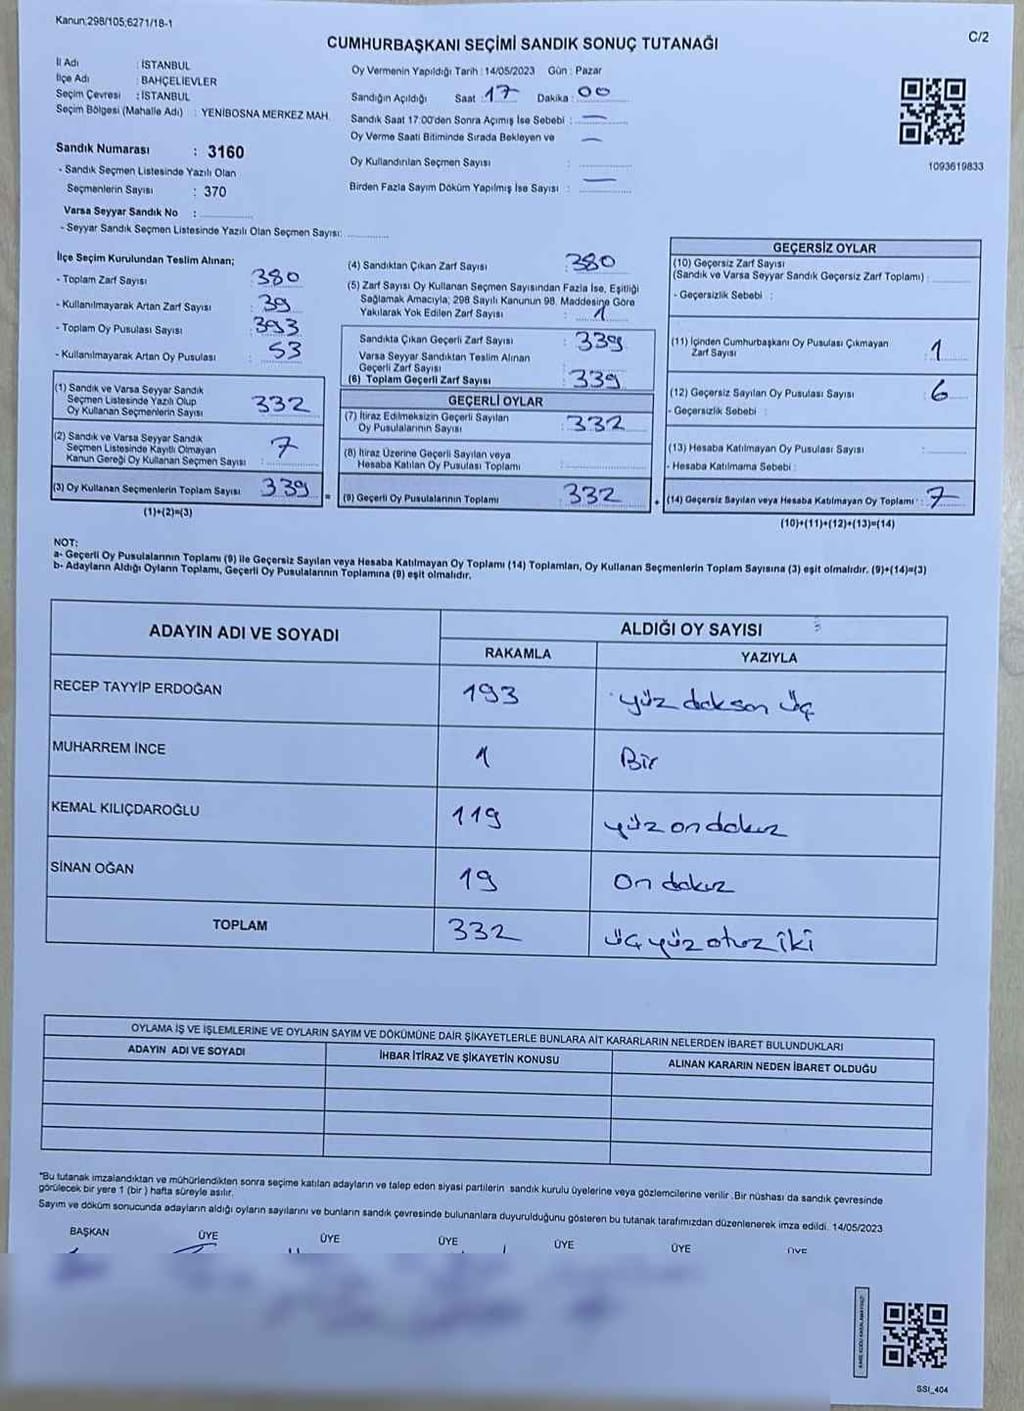 Kanun;298/105,6271/18-1
C/2
CUMHURBAŞKANI SEÇİMİ SANDIK SONUÇ TUTANAĞI
İl Adı : İSTANBUL
İlçe Adı : BAHÇELİEVLER
Seçim Çevresi : İSTANBUL
Seçim Bölgesi (Mahalle Adı) : YENİBOSNA MERKEZ MAH.
Sandık Numarası : 3160
- Sandık Seçmen Listesinde Yazılı Olan
Seçmenlerin Sayısı : 370
Varsa Seyyar Sandık No :
- Seyyar Sandık Seçmen Listesinde Yazılı Olan Seçmen Sayısı:
Oy Vermenin Yapıldığı Tarih : 14/05/2023 Gün : Pazar
Sandığın Açıldığı Saat : 17 Dakika : 00
Sandık Saat 17:00'den Sonra Açımış İse Sebebi : —
Oy Verme Saati Bitiminde Sırada Bekleyen ve —
Oy Kullandırılan Seçmen Sayısı :
Birden Fazla Sayım Döküm Yapılmış İse Sayısı : —
1093619833
İlçe Seçim Kurulundan Teslim Alınan;
- Toplam Zarf Sayısı : 380
- Kullanılmayarak Artan Zarf Sayısı : 39
- Toplam Oy Pusulası Sayısı : 393
- Kullanılmayarak Artan Oy Pusulası : 53
(1) Sandık ve Varsa Seyyar Sandık
Seçmen Listesinde Yazılı Olup
Oy Kullanan Seçmenlerin Sayısı 332
(2) Sandık ve Varsa Seyyar Sandık
Seçmen Listesinde Kayıtlı Olmayan
Kanun Gereği Oy Kullanan Seçmen Sayısı : 7
(3) Oy Kullanan Seçmenlerin Toplam Sayısı 339
(1)+(2)=(3)
(4) Sandıktan Çıkan Zarf Sayısı : 380
(5) Zarf Sayısı Oy Kullanan Seçmen Sayısından Fazla İse, Eşitliği
Sağlamak Amacıyla, 298 Sayılı Kanunun 98. Maddesine Göre
Yakılarak Yok Edilen Zarf Sayısı : 1
Sandıkta Çıkan Geçerli Zarf Sayısı : 339
Varsa Seyyar Sandıktan Teslim Alınan
Geçerli Zarf Sayısı :
(6) Toplam Geçerli Zarf Sayısı : 339
GEÇERLİ OYLAR
(7) İtiraz Edilmeksizin Geçerli Sayılan
Oy Pusulalarının Sayısı : 332
(8) İtiraz Üzerine Geçerli Sayılan veya
Hesaba Katılan Oy Pusulası Toplamı :
= (9) Geçerli Oy Pusulalarının Toplamı : 332
GEÇERSİZ OYLAR
(10) Geçersiz Zarf Sayısı
(Sandık ve Varsa Seyyar Sandık Geçersiz Zarf Toplamı) :
- Geçersizlik Sebebi :
(11) İçinden Cumhurbaşkanı Oy Pusulası Çıkmayan
Zarf Sayısı : 1
(12) Geçersiz Sayılan Oy Pusulası Sayısı : 6
- Geçersizlik Sebebi :
(13) Hesaba Katılmayan Oy Pusulası Sayısı :
- Hesaba Katılmama Sebebi :
+ (14) Geçersiz Sayılan veya Hesaba Katılmayan Oy Toplamı : 7
(10)+(11)+(12)+(13)=(14)
NOT:
a- Geçerli Oy Pusulalarının Toplamı (9) ile Geçersiz Sayılan veya Hesaba Katılmayan Oy Toplamı (14) Toplamları, Oy Kullanan Seçmenlerin Toplam Sayısına (3) eşit olmalıdır. (9)+(14)=(3)
b- Adayların Aldığı Oyların Toplamı, Geçerli Oy Pusulalarının Toplamına (9) eşit olmalıdır.
ADAYIN ADI VE SOYADI
ALDIĞI OY SAYISI
RAKAMLA YAZIYLA
RECEP TAYYİP ERDOĞAN 193 yüz doksan üç
MUHARREM İNCE 1 Bir
KEMAL KILIÇDAROĞLU 119 yüz on dokuz
SİNAN OĞAN 19 On dokuz
TOPLAM 332 üç yüz otuz iki
OYLAMA İŞ VE İŞLEMLERİNE VE OYLARIN SAYIM VE DÖKÜMÜNE DAİR ŞİKAYETLERLE BUNLARA AİT KARARLARIN NELERDEN İBARET BULUNDUKLARI
ADAYIN ADI VE SOYADI İHBAR İTİRAZ VE ŞİKAYETİN KONUSU ALINAN KARARIN NEDEN İBARET OLDUĞU
"Bu tutanak imzalandıktan ve mühürlendikten sonra seçime katılan adayların ve talep eden siyasi partilerin sandık kurulu üyelerine veya gözlemcilerine verilir .Bir nüshası da sandık çevresinde
görülecek bir yere 1 (bir ) hafta süreyle asılır.
Sayım ve döküm sonucunda adayların aldığı oyların sayılarını ve bunların sandık çevresinde bulunanlara duyurulduğunu gösteren bu tutanak tarafımızdan düzenlenerek imza edildi. 14/05/2023
BAŞKAN ÜYE ÜYE ÜYE ÜYE ÜYE ÜYE
SSI_404